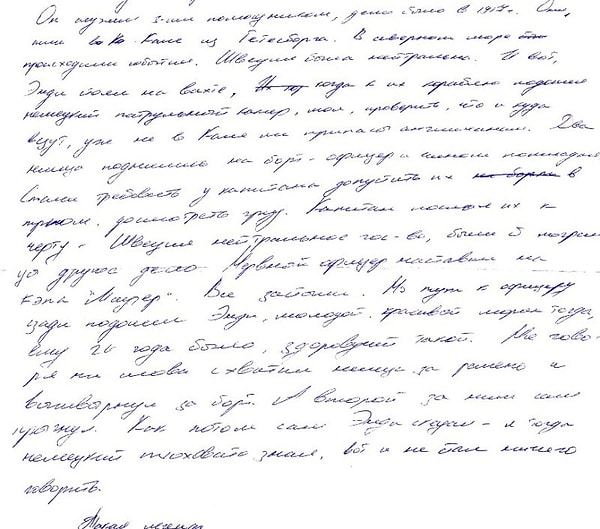 Он служил 3-им помощником, дело было в 1917г. Они,
шли из Гетеборга. В северном море
происходили события. Швеция была нейтральна. И вот,
Энди стоял на вахте, когда к их кораблю подошел
немецкий патрульный катер, мол, проверить, что и куда
везут, уже не в Кале ли припасы англичанам. Два
немца поднялись на борт - офицер и
Стали требовать у капитана допустить их в
трюм, досмотреть груз. Капитан послал их к
черту - Швеция нейтральное гос-во, были б
другое дело. Нервный офицер наставил на
кэпа "Маузер". Все застыли. Но тут к офицеру
сзади подошел Энди, молодой, красивый парень тогда,
ему 24 года было, здоровущий такой. Не гово-
ря ни слова схватил немца за ремень и
вышвырнул за борт. А второй за ним сам
прыгнул. Как потом сам Энди сказал - я тогда
немецкий плоховато знал, вот и не стал ничего
говорить.
Такая